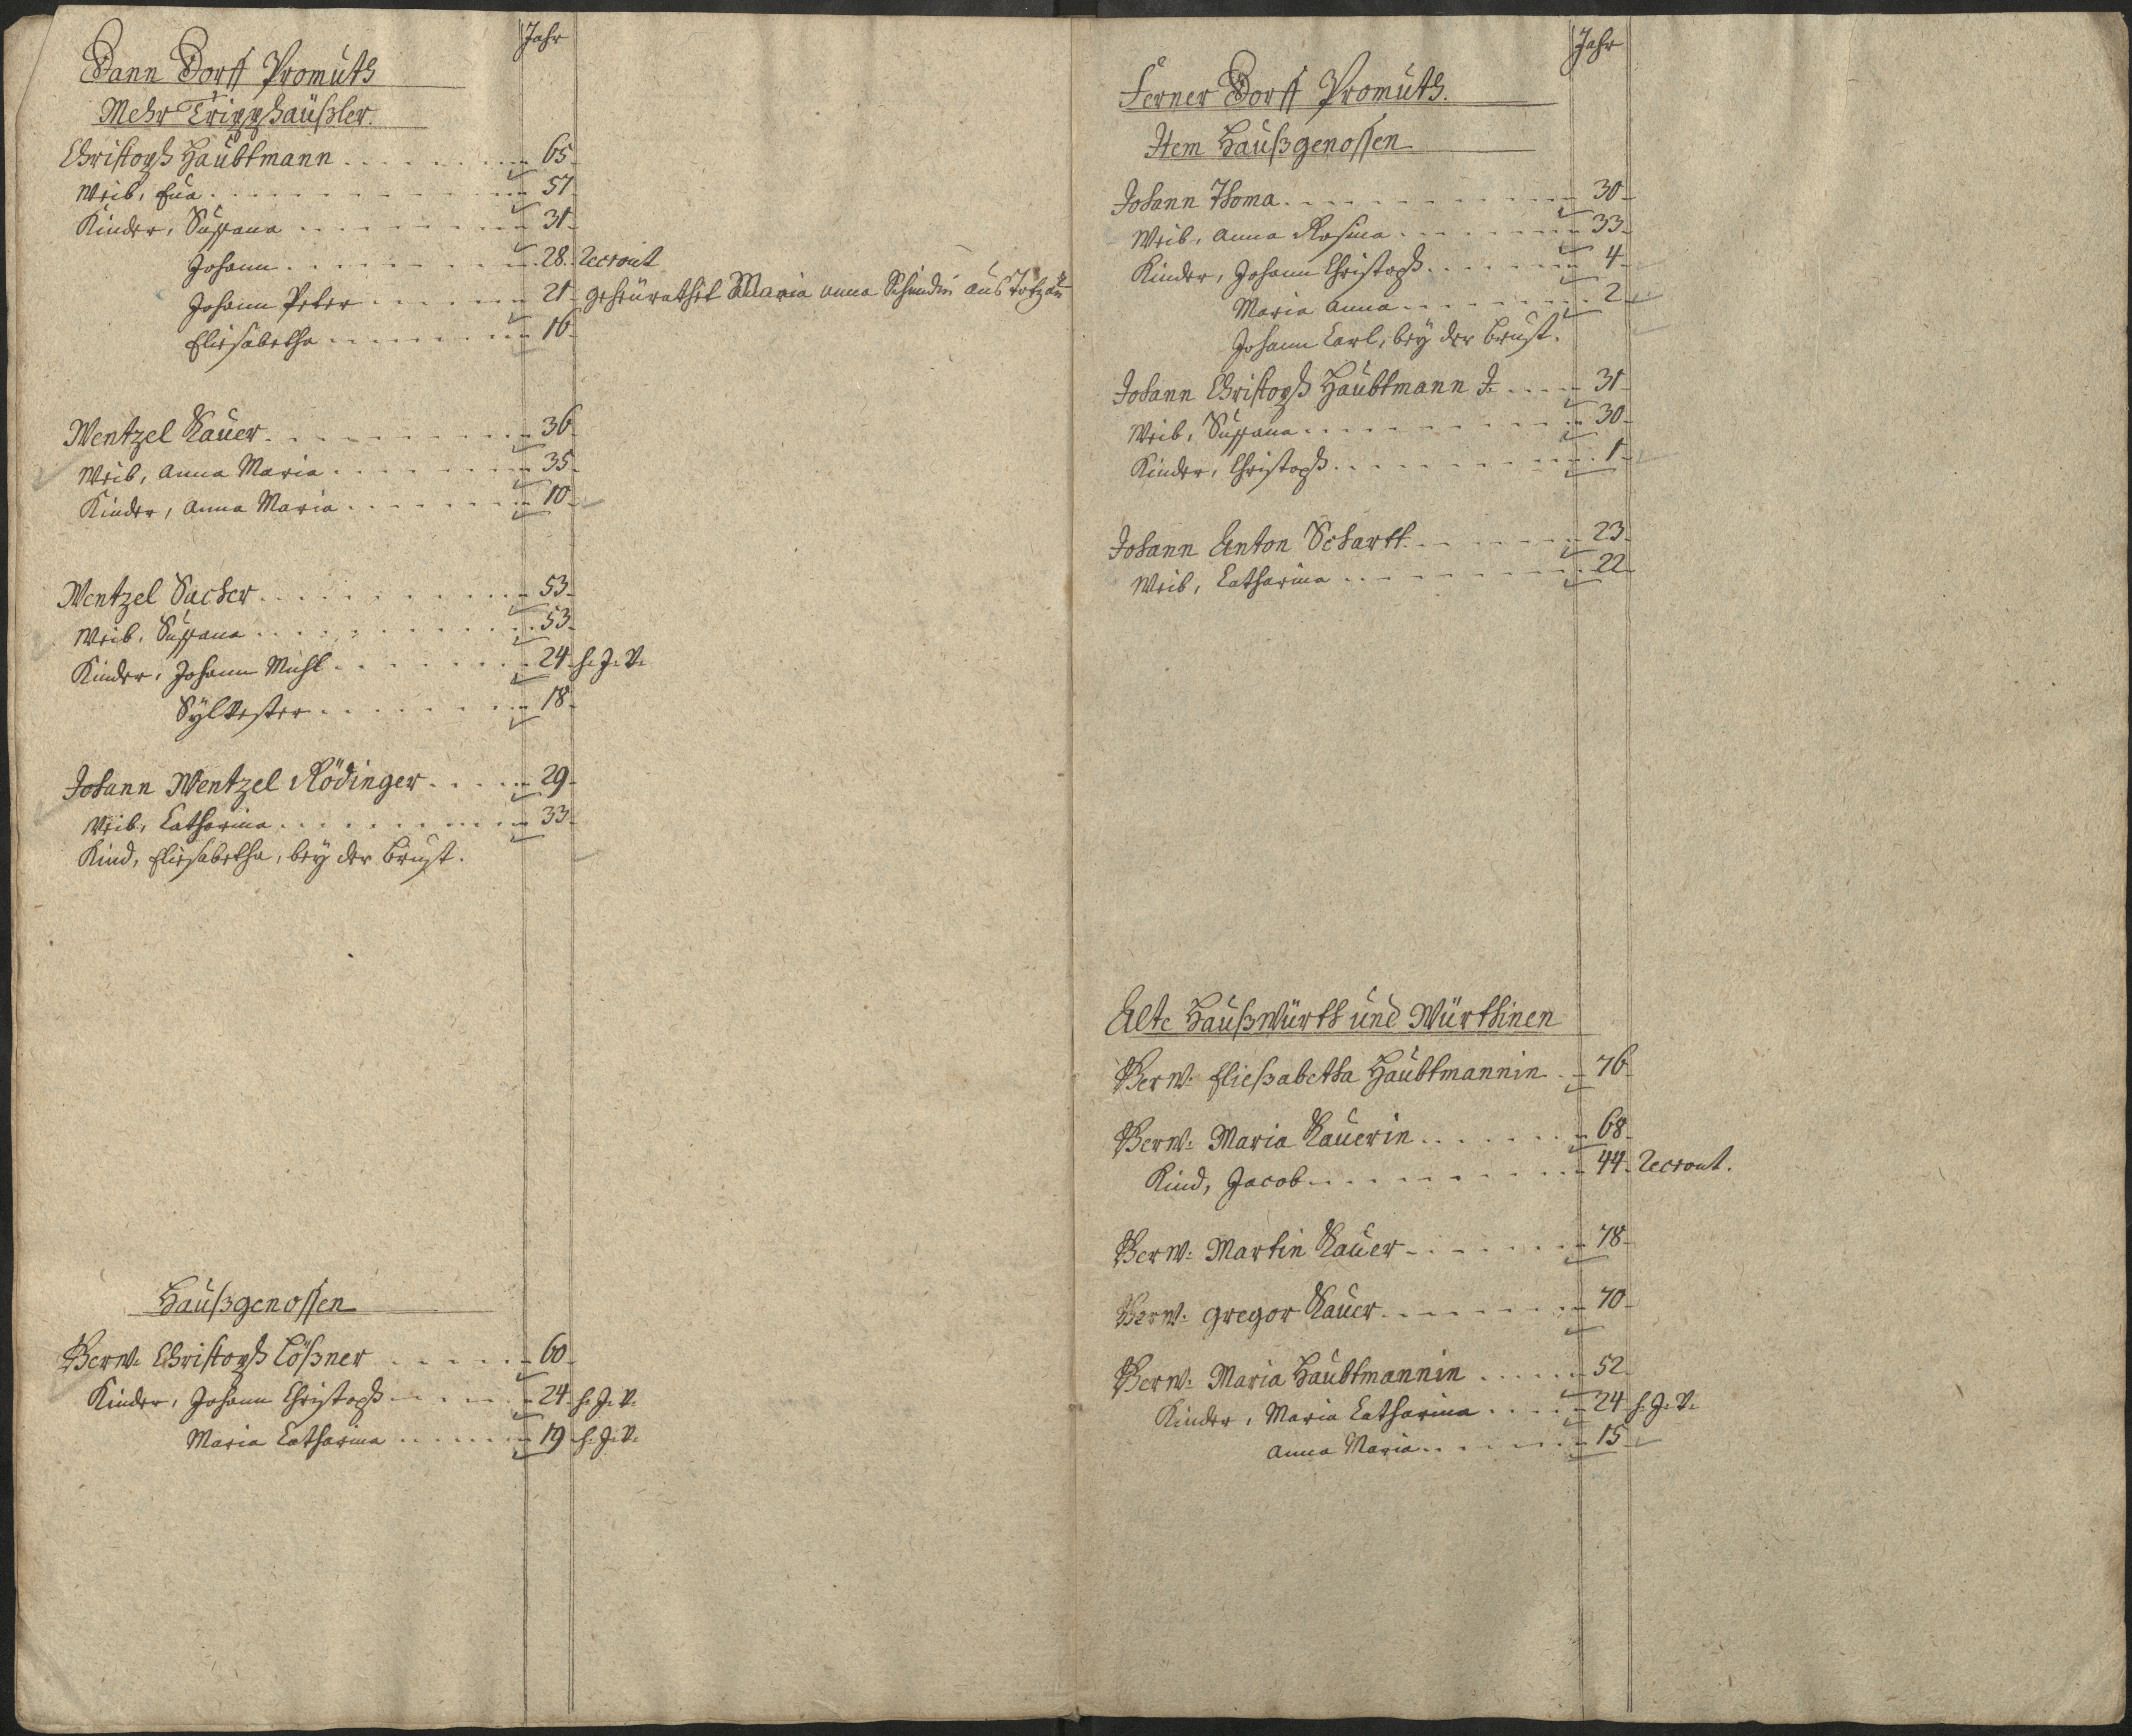 Jahr
Dann Dorff Promuth
Mehr Tripphäußler.
Christoph Haubtmann 65
Weib, Eva 57
Kinder, Susana 31
Johann 28 Recrout
Johann Peter 21 geheürathet Maria Anna aus Totzau
Eliesabetha 16
Wentzel Lauer 36
Weib, Anna Maria 35
Kinder, Anna Maria 10
Wentzel Sucher 53
Weib, Susana 53
Kinder, Johann Michl 24 h. J. V.
Sylvester 18
Johann Wentzel Rödinger 29
Weib, Catharina 33
Kind, Eliesabetha, bey der Brust.
Haußgenossen
Verw. Christoph Lößner 60
Kinder, Johann Christoph 24 h. J. V.
Maria Catharina 19 h. J. V.
Jahr
Ferner Dorff Promuth.
Item Haußgenossen
Johann Thoma 30
Weib, Anna Rosina 33
Kinder, Johann Christoph 4
Maria Anna 2
Johann Carl, bey der Brust.
Johann Christoph Haubtmann J. 31
Weib, Susana 30
Kinder, Christoph 1
Johann Anton Schartt 23
Weib, Catharina 22
Alte Haußwürth und Würthinen
Verw. Eließabetha Haubtmannin 76
Verw. Maria Lauerin 68
Kind, Jacob 44 Recrout.
Verw. Martin Lauer 78
Verw. Gregor Lauer 70
Verw. Maria Haubtmannin 52
Kinder, Maria Catharina 24 h. J. V.
Anna Maria 15